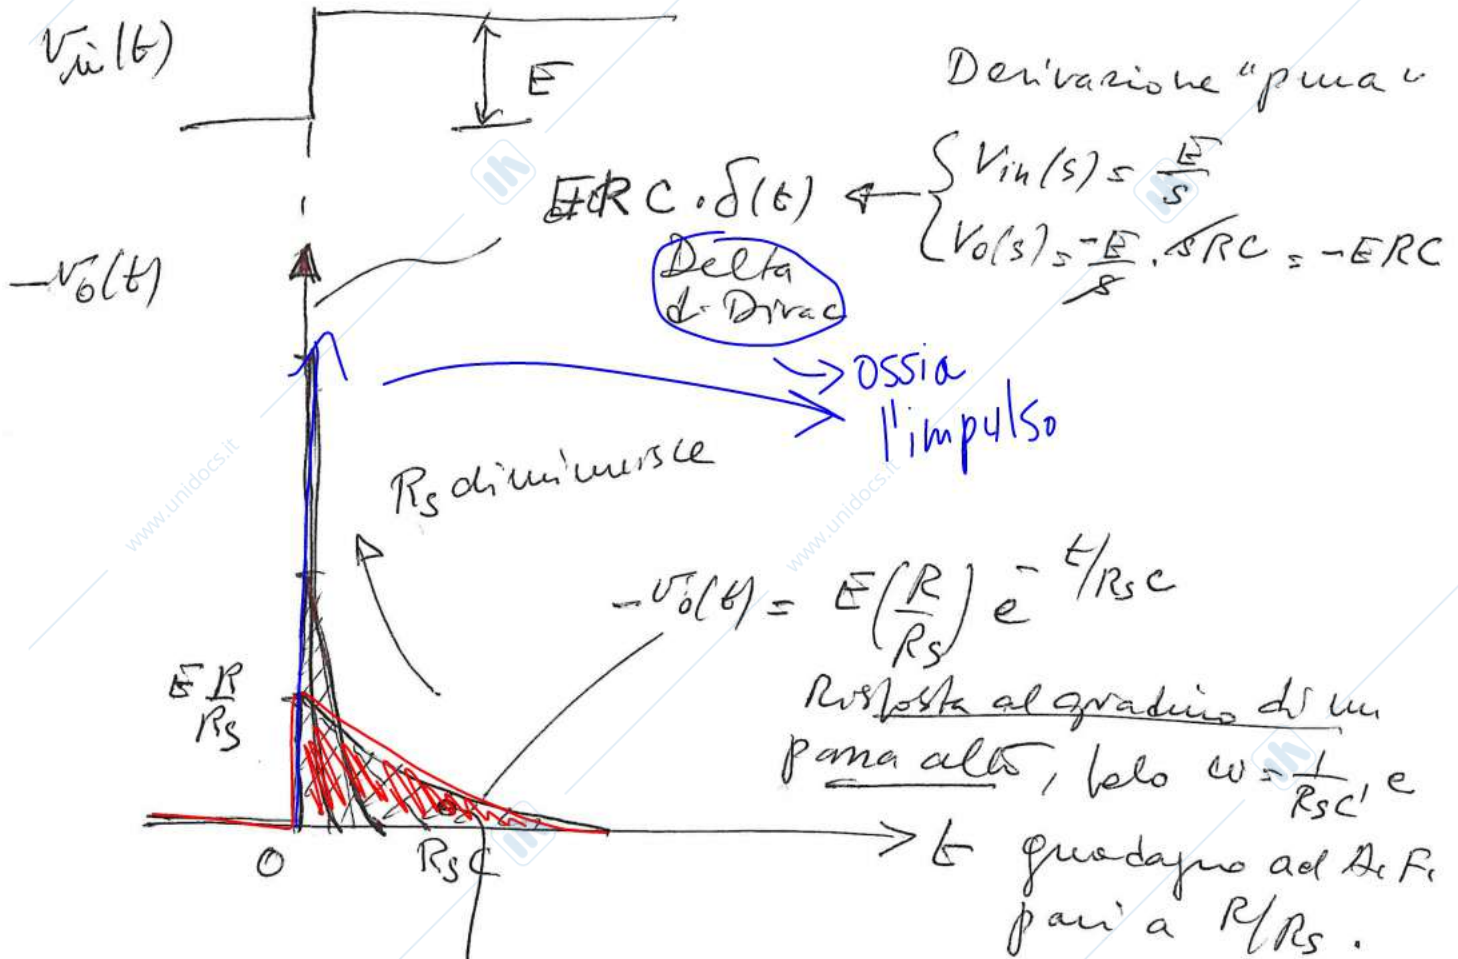 v_in(t)
E
Derivazione "pura"
E RC · δ(t) ← { V_in(s) = E/s
V_o(s) = -E/s · sRC = -ERC
-v_o(t)
Delta
di Dirac
→ ossia
l'impulso
R_S diminuisce
-v_o(t) = E(R/R_S) e^{-t/R_S C}
E R/R_S
Risposta al gradino di un
passa alto, polo ω = 1/R_S C, e
guadagno ad A.F.
pari a R/R_S.
0
R_S C
t
www.unidocs.it
www.unidocs.it